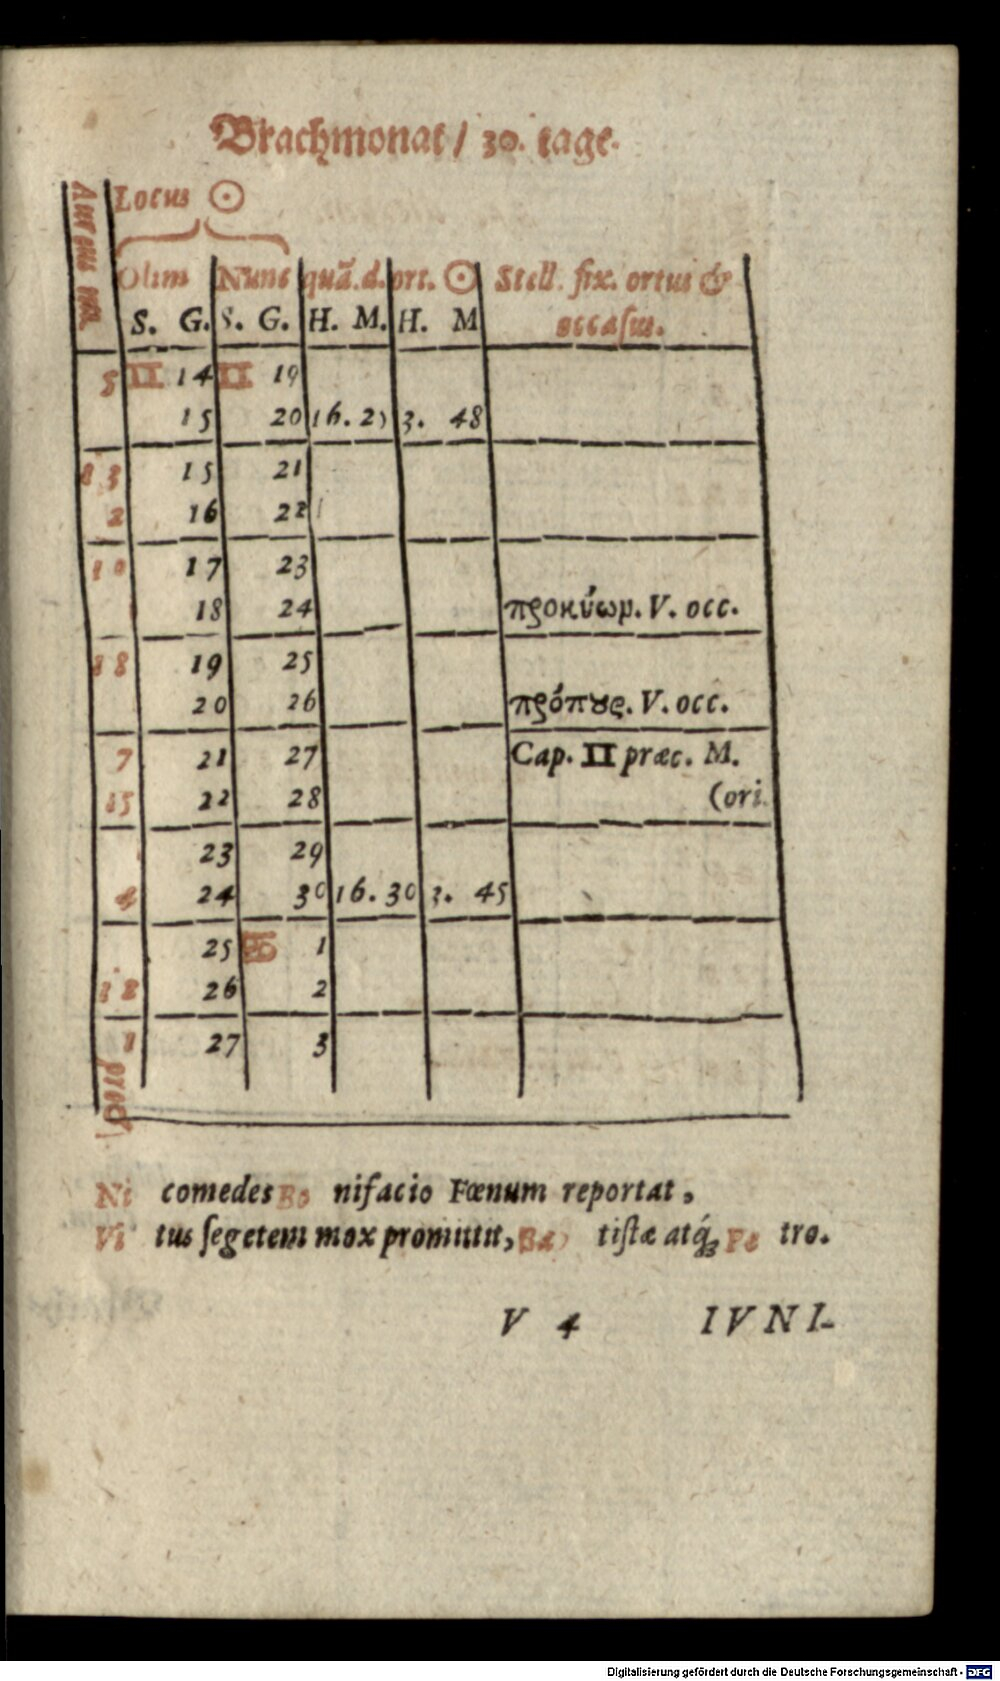 Brachmonat / 30. tage.
Locus ☉
Olim Nunc quã. d. ort. ☉ Stell. fix. ortus &
S. G. S. G. H. M. H. M occasus.
5 ♊ 14 ♊ 19
15 20 16. 23 3. 48
13 15 21
2 16 22
10 17 23
18 24 προκύωρ. V. occ.
18 19 25
20 26 πρόπȣς. V. occ.
7 21 27 Cap. ♊ præc. M.
15 22 28 (ori.
23 29
4 24 30 16. 30 3. 45
25 ♋ 1
12 26 2
1 27 3
Ni comedes Bo nifacio Fœnum reportat,
Vi tus segetem mox promittit, Ba tistæ atq́; Pe tro.
V 4 IVNI-
Digitalisierung gefördert durch die Deutsche Forschungsgemeinschaft - DFG